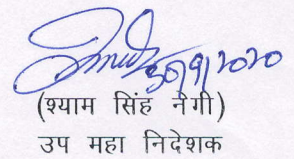 30/9/2020
(श्याम सिंह नेगी)
उप महा निदेशक